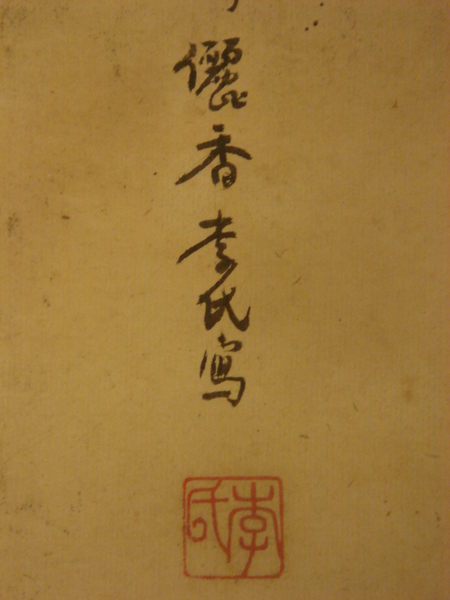 儷香李氏寫
李氏